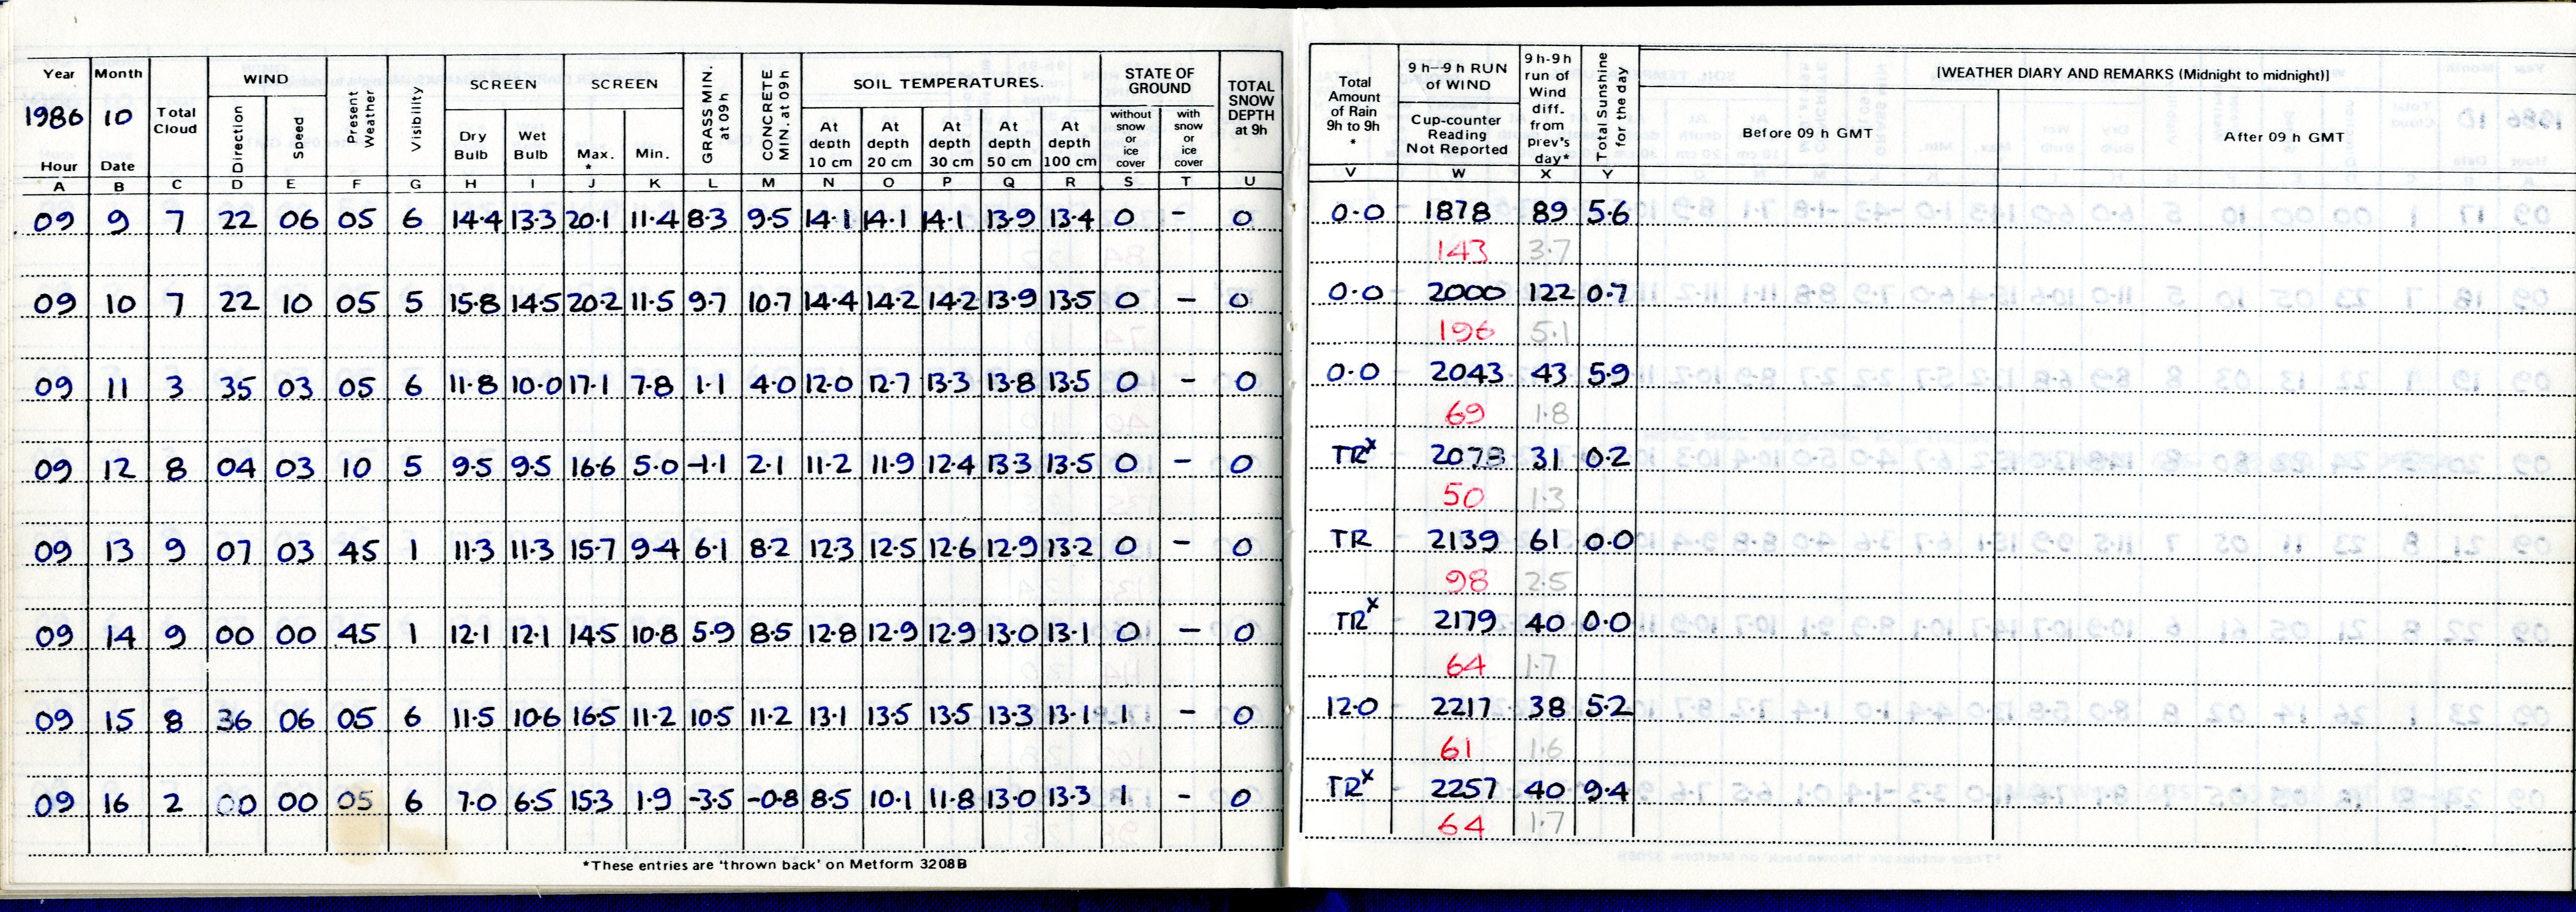 Year Month
1986 10
Hour Date
Total Cloud
WIND
Direction Speed
Present Weather
Visibility
SCREEN SCREEN
Dry Bulb Wet Bulb Max.* Min.
GRASS MIN. at 09 h
CONCRETE MIN. at 09 h
SOIL TEMPERATURES.
At depth 10 cm At depth 20 cm At depth 30 cm At depth 50 cm At depth 100 cm
STATE OF GROUND
without snow or ice cover with snow or ice cover
TOTAL SNOW DEPTH at 9h
Total Amount of Rain 9h to 9h *
9 h–9 h RUN of WIND
Cup-counter Reading Not Reported
9 h-9 h run of Wind diff. from prev's day*
Total Sunshine for the day
[WEATHER DIARY AND REMARKS (Midnight to midnight)]
Before 09 h GMT After 09 h GMT
A B C D E F G H I J K L M N O P Q R S T U V W X Y
09 9 7 22 06 05 6 14.4 13.3 20.1 11.4 8.3 9.5 14.1 14.1 14.1 13.9 13.4 0 - 0 0.0 1878 89 5.6
143 3.7
09 10 7 22 10 05 5 15.8 14.5 20.2 11.5 9.7 10.7 14.4 14.2 14.2 13.9 13.5 0 - 0 0.0 2000 122 0.7
196 5.1
09 11 3 35 03 05 6 11.8 10.0 17.1 7.8 1.1 4.0 12.0 12.7 13.3 13.8 13.5 0 - 0 0.0 2043 43 5.9
69 1.8
09 12 8 04 03 10 5 9.5 9.5 16.6 5.0 -1.1 2.1 11.2 11.9 12.4 13.3 13.5 0 - 0 TRx 2078 31 0.2
50 1.3
09 13 9 07 03 45 1 11.3 11.3 15.7 9.4 6.1 8.2 12.3 12.5 12.6 12.9 13.2 0 - 0 TR 2139 61 0.0
98 2.5
09 14 9 00 00 45 1 12.1 12.1 14.5 10.8 5.9 8.5 12.8 12.9 12.9 13.0 13.1 0 - 0 TRx 2179 40 0.0
64 1.7
09 15 8 36 06 05 6 11.5 10.6 16.5 11.2 10.5 11.2 13.1 13.5 13.5 13.3 13.1 1 - 0 12.0 2217 38 5.2
61 1.6
09 16 2 00 00 05 6 7.0 6.5 15.3 1.9 -3.5 -0.8 8.5 10.1 11.8 13.0 13.3 1 - 0 TRx 2257 40 9.4
64 1.7
*These entries are 'thrown back' on Metform 3208B